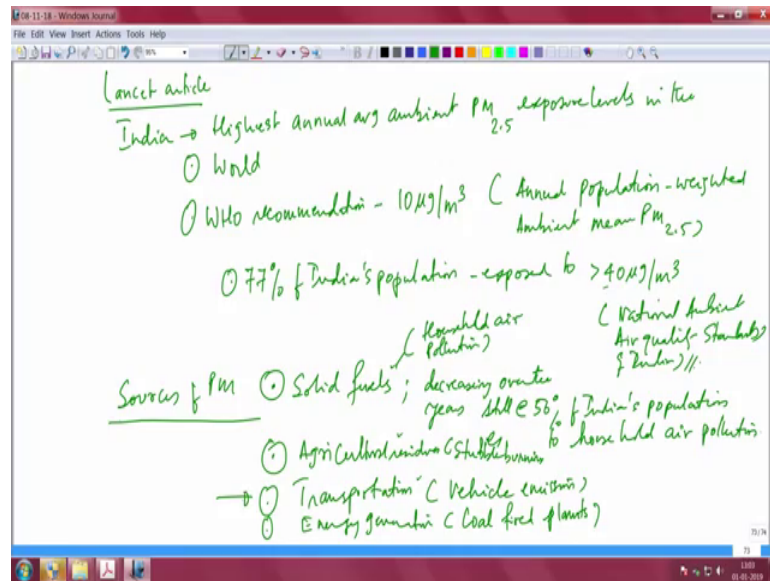 08-11-18 - Windows Journal
File Edit View Insert Actions Tools Help
Lancet article
India → Highest annual avg ambient PM2.5 exposure levels in the
World
WHO recommendation - 10 µg/m3 ( Annual population-weighted
Ambient mean PM2.5)
77% of India's population - exposed to >40 µg/m3
( National Ambient
Air quality Standards
of India) //
( Household air
pollution)
Sources of PM Solid fuels ; decreasing over the
years still @ 56% of India's population
to household air pollution
Agricultural residues (Stubble burning
→ Transportation ( Vehicle emission)
Energy generation ( Coal fired plants)
73/74
73
13:03
01-01-2019